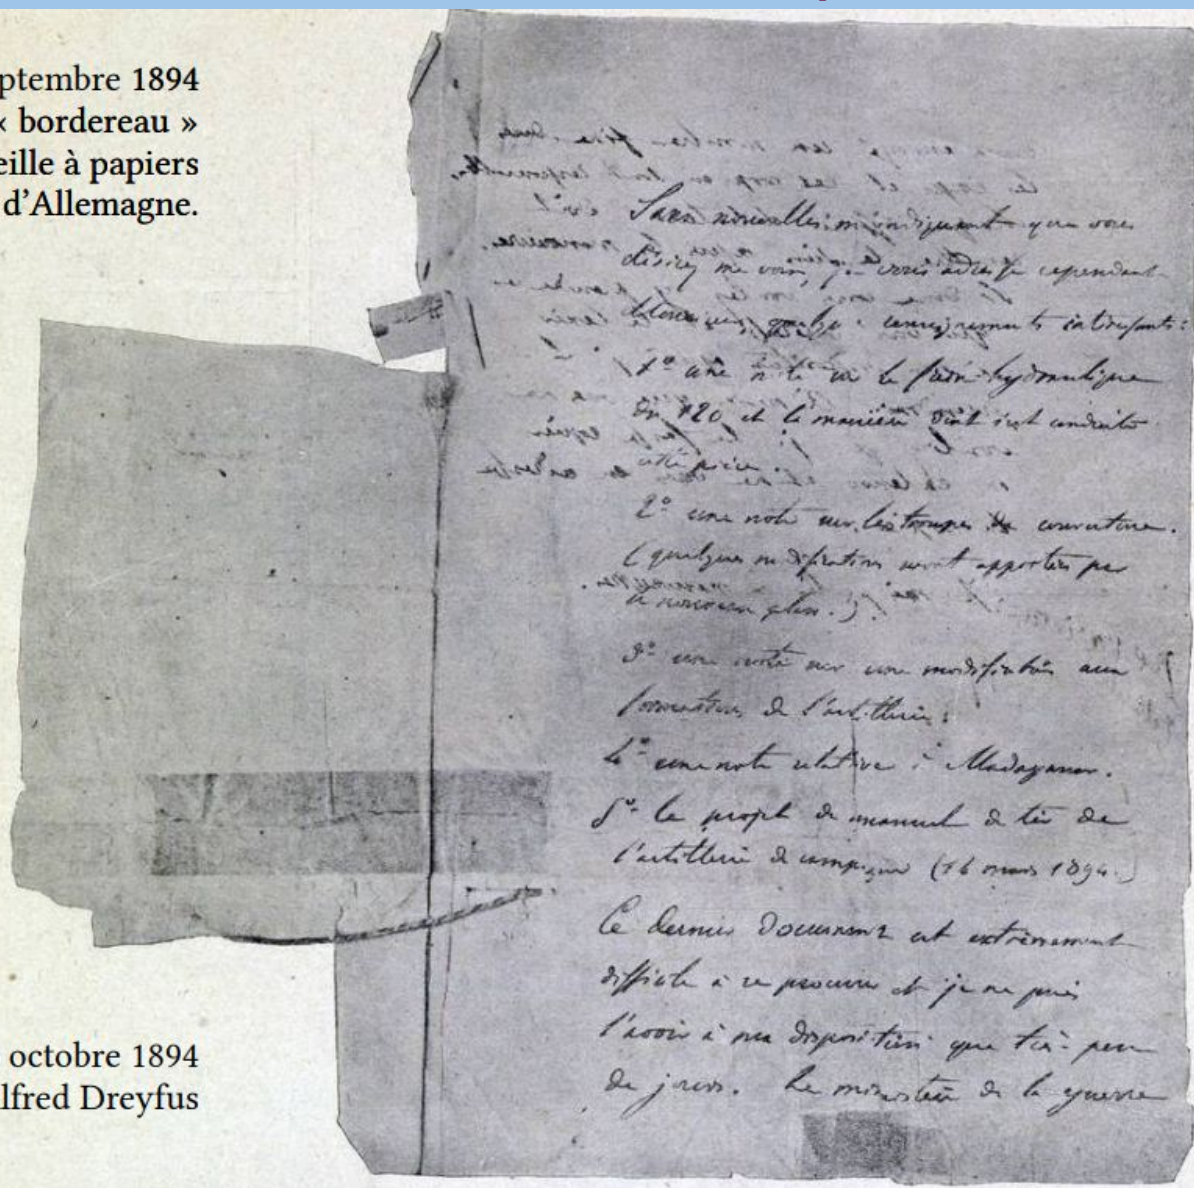 ptembre 1894
« bordereau »
eille à papiers
d'Allemagne.
Sans nouvelles m'indiquant que vous
désirez me voir, je vous adresse cependant
Monsieur quelques renseignements intéressants :
1º une note sur le frein hydraulique
du 120 et la manière dont s'est conduite
cette pièce.
2º une note sur les troupes de couverture.
(quelques modifications seront apportées par
le nouveau plan.)
3º une note sur une modification aux
formations de l'artillerie :
4º une note relative à Madagascar.
5º le projet de manuel de tir de
l'artillerie de campagne (14 mars 1894.)
Ce dernier document est extrêmement
difficile à se procurer et je ne puis
l'avoir à ma disposition que très peu
de jours. Le ministère de la guerre
octobre 1894
lfred Dreyfus